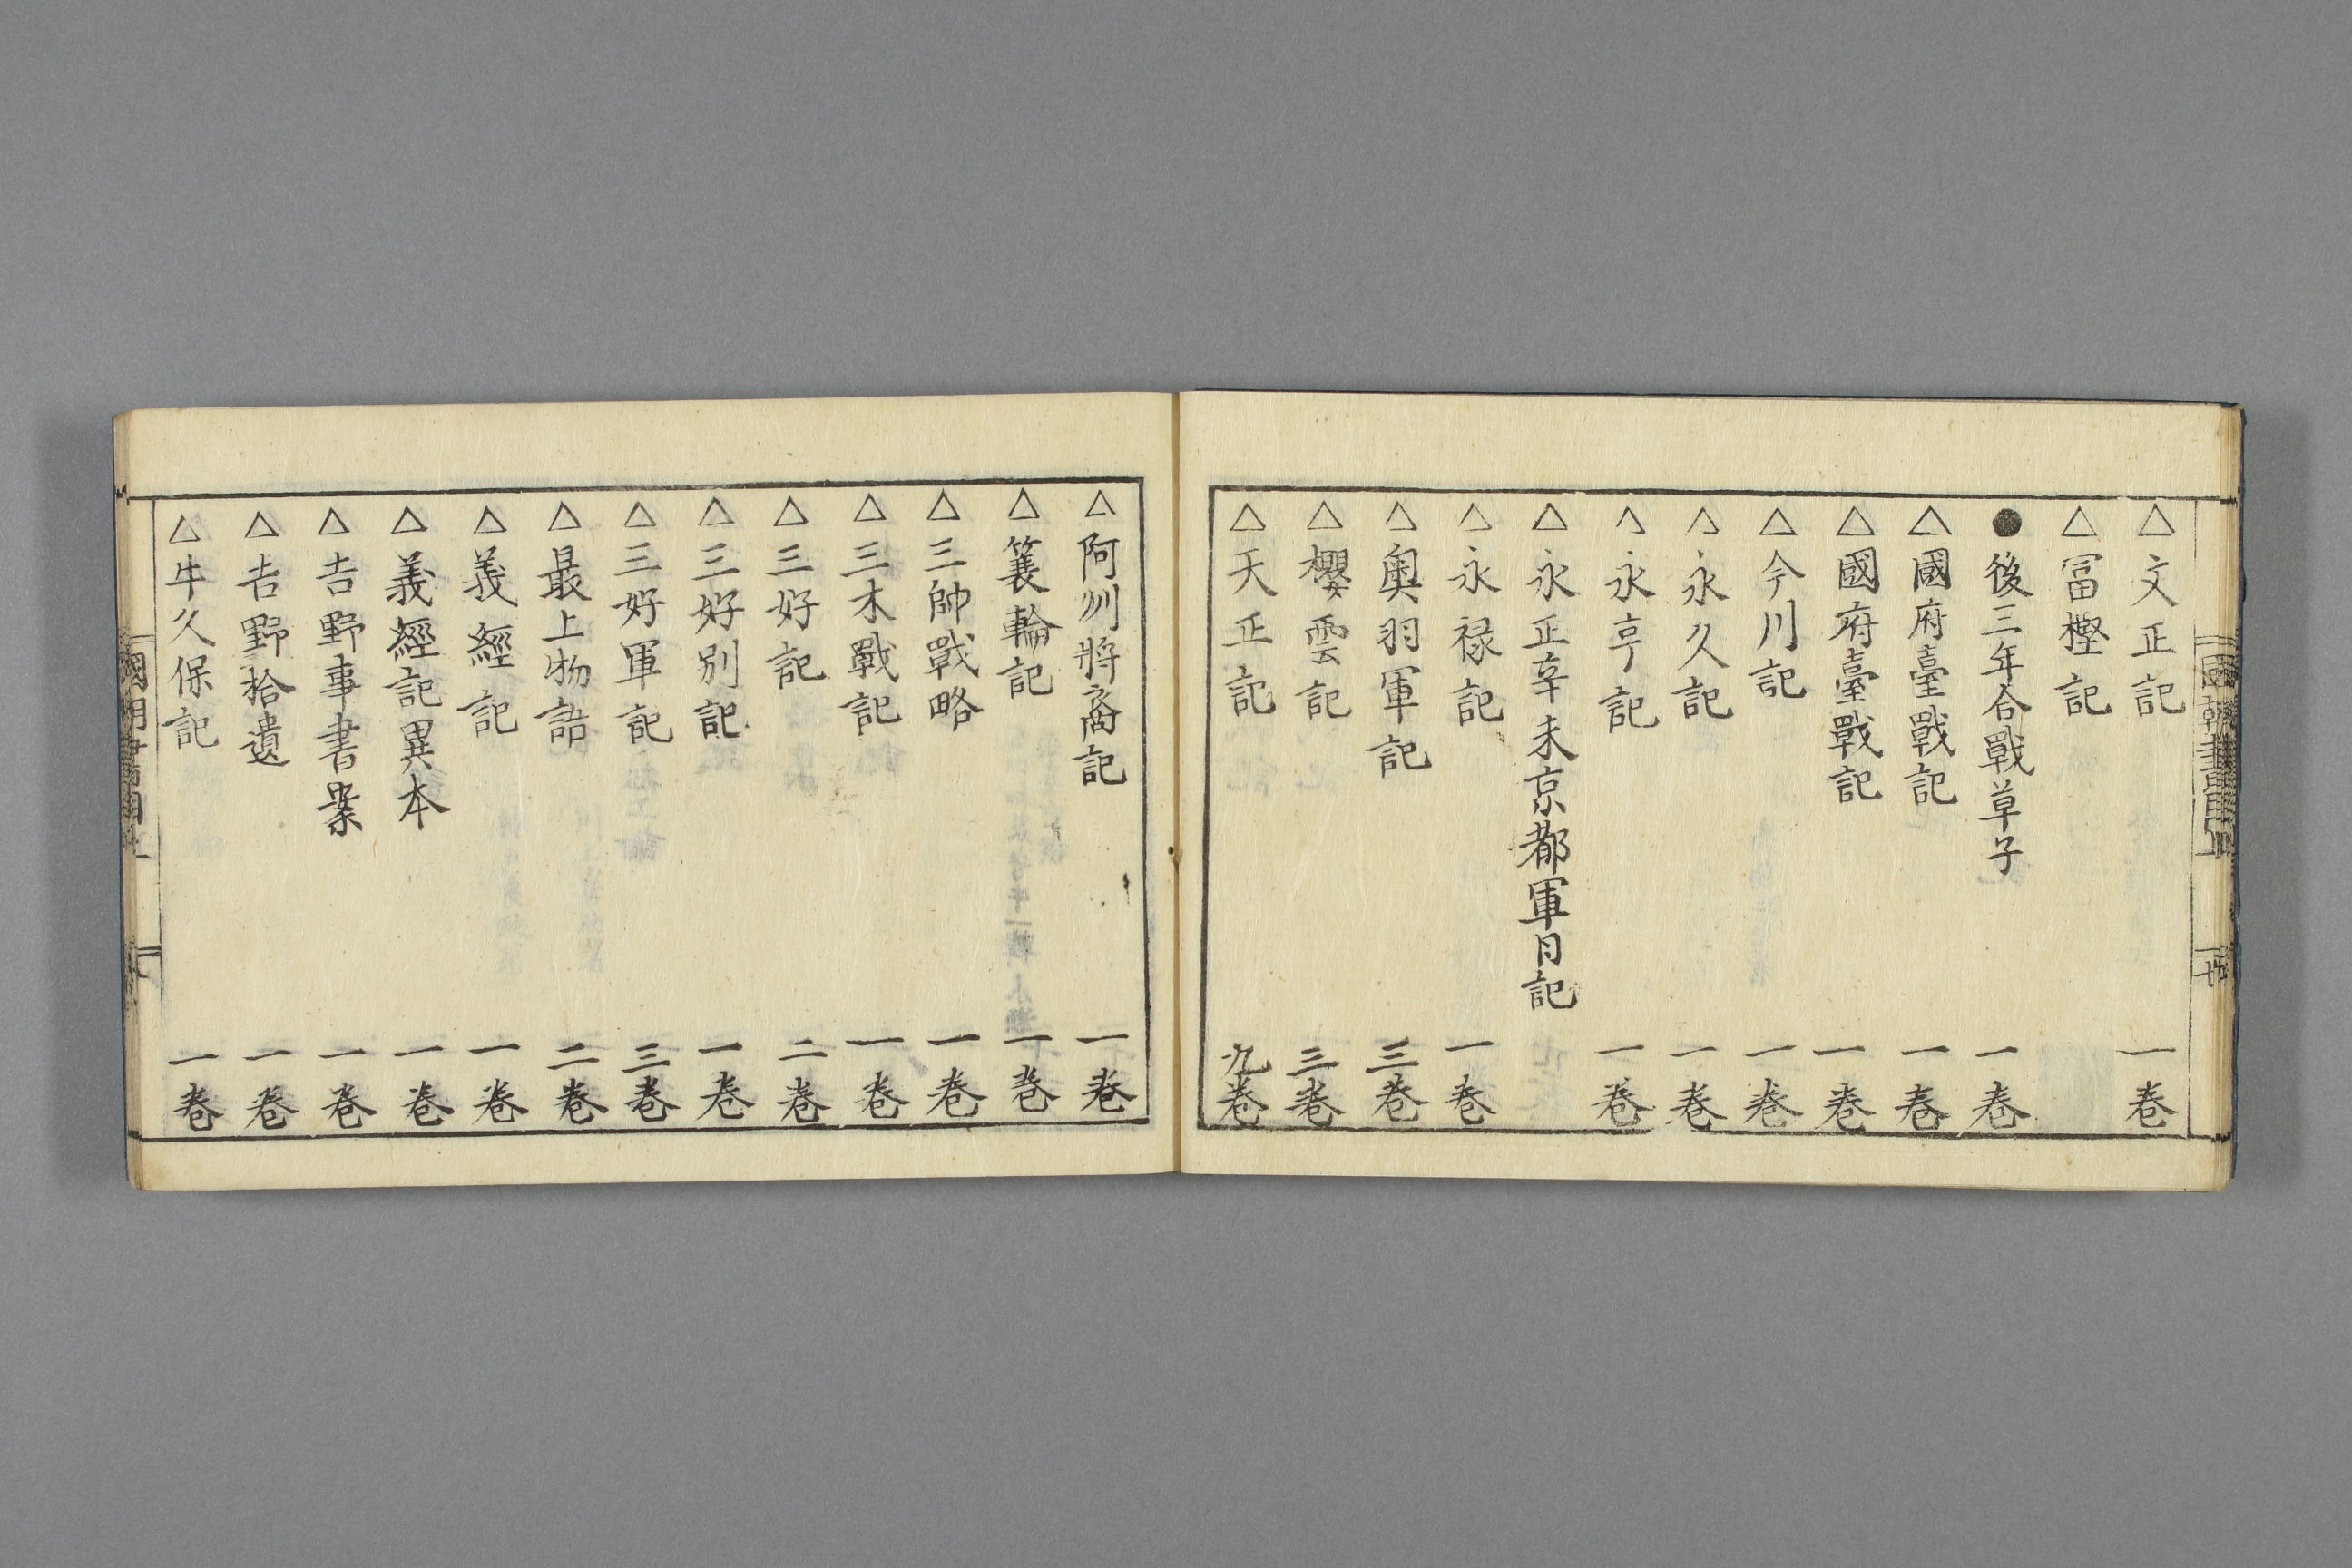 △文正記 一卷
△冨樫記
●後三年合戰草子 一卷
△國府臺戰記 一卷
△國府臺戰記 一卷
△今川記 一卷
△永久記 一卷
△永亨記 一卷
△永正辛未京都軍日記
△永禄記 一卷
△奧羽軍記 三卷
△櫻雲記 三卷
△天正記 九卷
△阿州將裔記 一卷
△簑輪記 一卷
△三帥戰略 一卷
△三木戰記 一卷
△三好記 二卷
△三好別記 一卷
△三好軍記 三卷
△最上物語 二卷
△義經記 一卷
△義經記異本 一卷
△吉野事書案 一卷
△吉野拾遺 一卷
△牛久保記 一卷